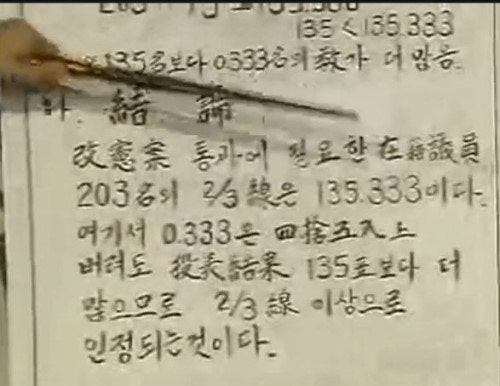 135 < 135.333
135名보다 0.333名의 数가 더 많음.
結論
改憲案 통과에 필요한 在籍議員
203名의 2/3線은 135.333이다.
여기서 0.333은 四捨五入上
버려도 投表結果 135표보다 더
많으므로 2/3線 이상으로
인정되는것이다.